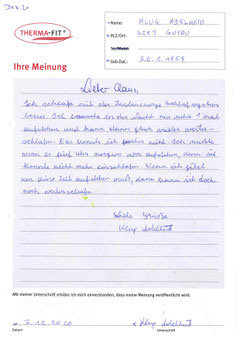 THERMA-FIT®
Name: KLUG ADELHEID
PLZ/Ort: 4293 GUTAU
Geb. Dat.: 30.1.1959
Ihre Meinung
Lieber Claus,
Ich schlafe seit der
besser. Ich in der Nacht nur mehr 1 mal
aufstehen und kann dann gleich wieder weiter-
schlafen. Das konnte ich vorher nicht. Ich musste
um fünf Uhr morgens aufstehen, denn ich
konnte nicht mehr einschlafen. Wenn ich jetzt
um diese Zeit aufstehen muß, dann kann ich doch
noch weiterschlafen.
Viele Grüße
Klug Adelheid
Mit meiner Unterschrift erkläre ich mich einverstanden, dass meine Meinung veröffentlicht wird.
7.12.2020
Klug Adelheid
Datum
Unterschrift